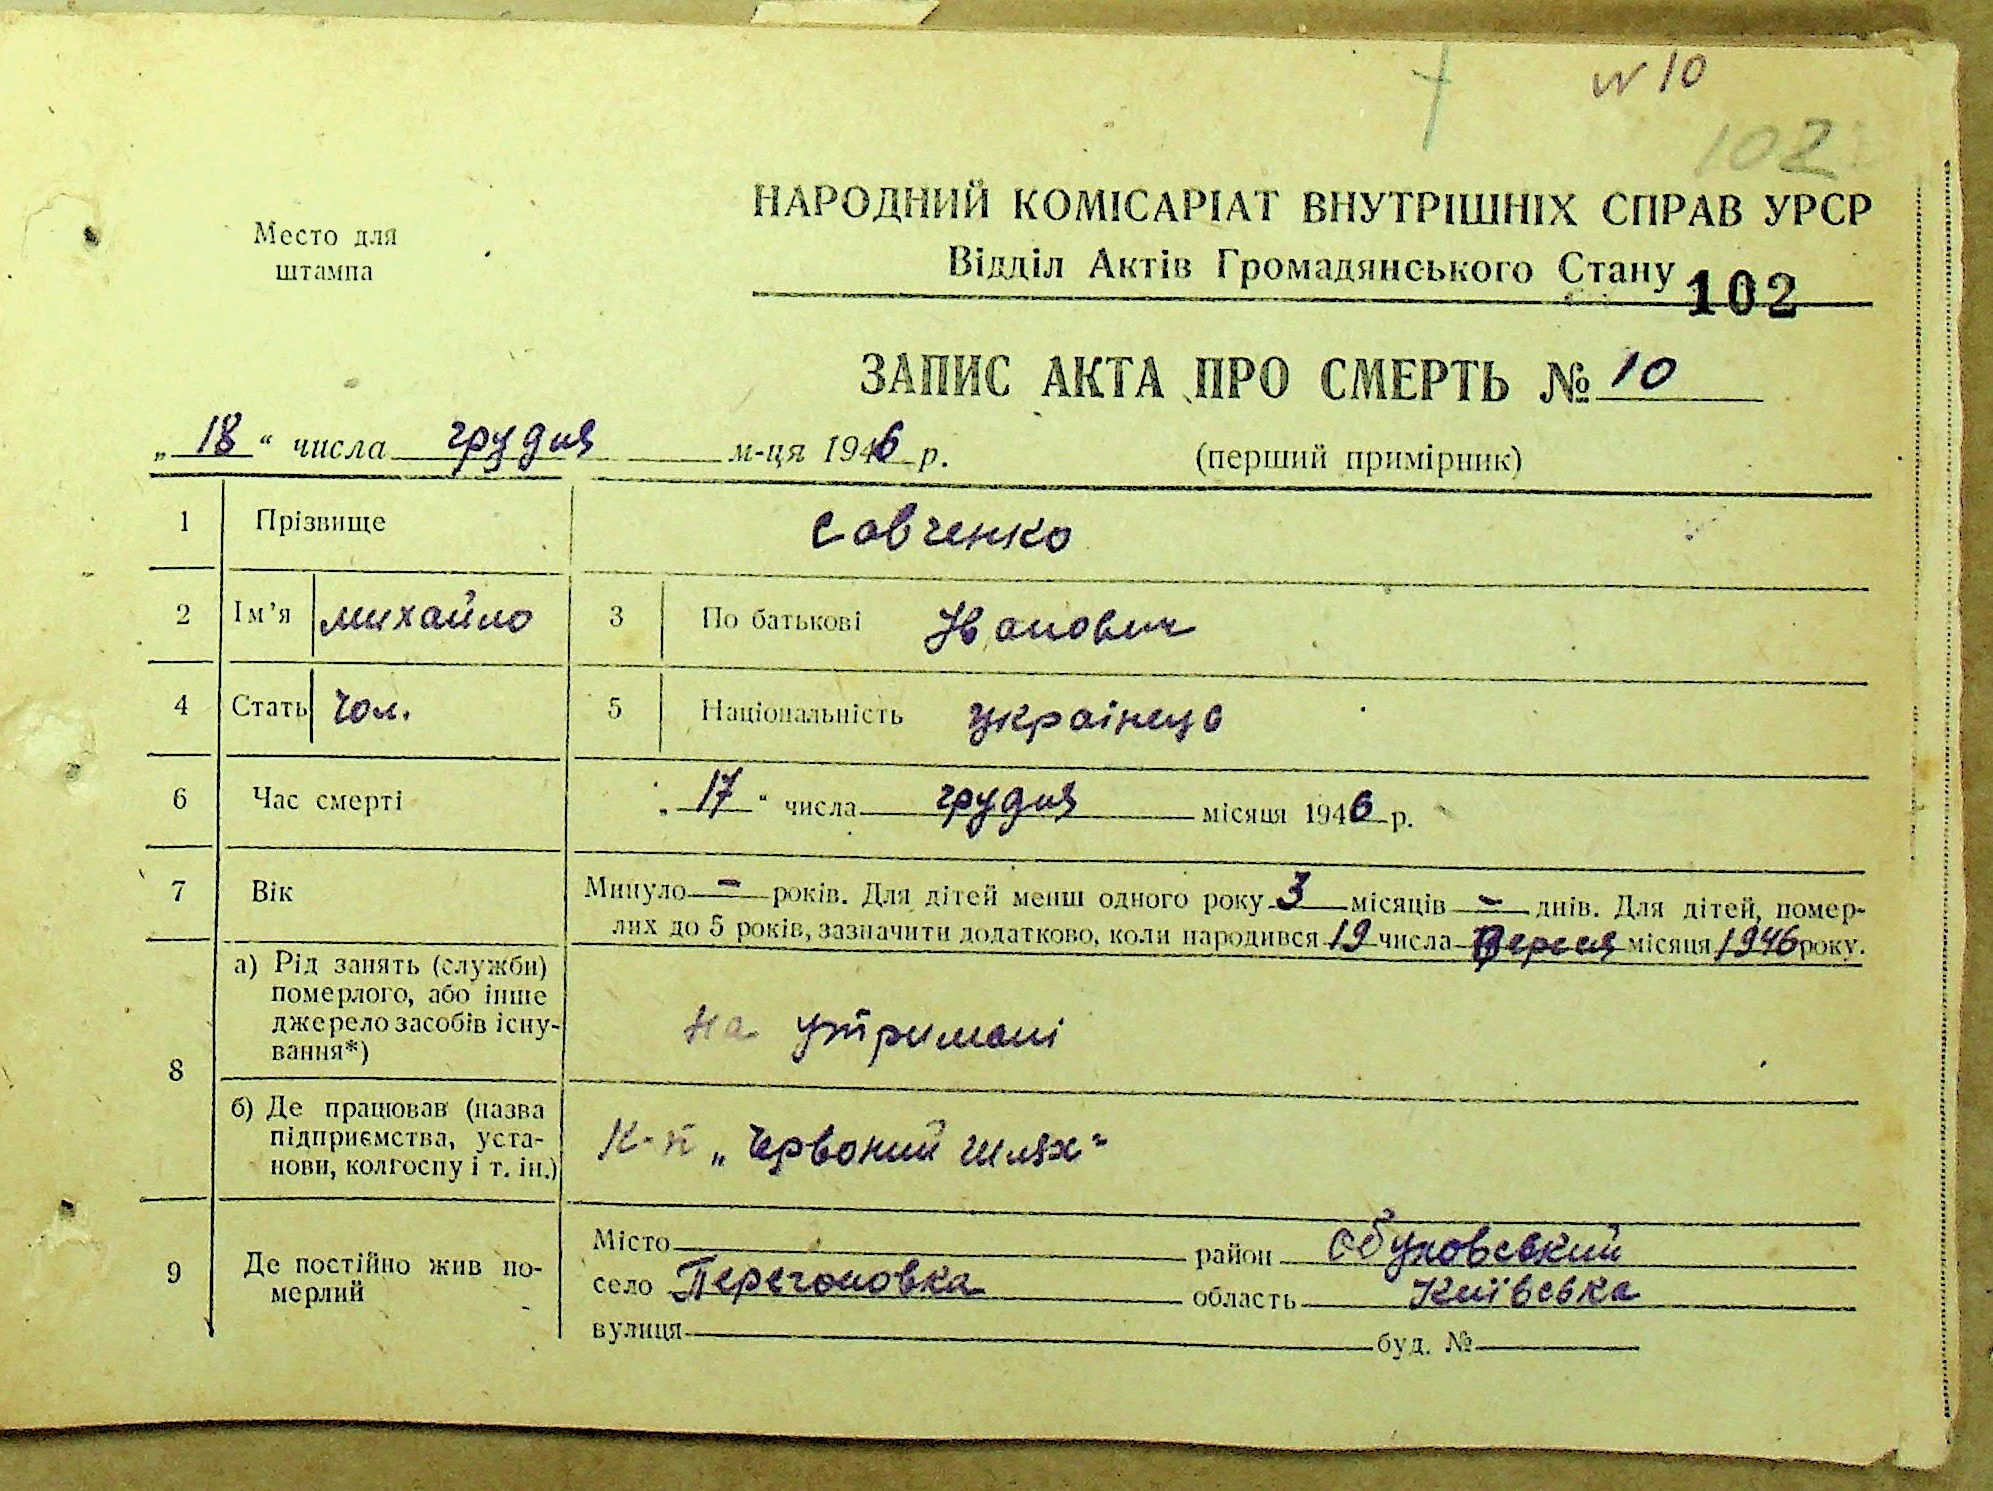 № 10
102
НАРОДНИЙ КОМІСАРІАТ ВНУТРІШНІХ СПРАВ УРСР
Место для
штампа
Відділ Актів Громадянського Стану
102
ЗАПИС АКТА ПРО СМЕРТЬ № 10
„ 18 “ числа грудня м-ця 1946 р.
(перший примірник)
1 Прізвище Савченко
2 Ім’я Михайло 3 По батькові Іванович
4 Стать чол. 5 Національність українець
6 Час смерті „ 17 “ числа грудня місяця 1946 р.
7 Вік Минуло - років. Для дітей менш одного року 3 місяців - днів. Для дітей, помер-
лих до 5 років, зазначити додатково, коли народився 19 числа Вересня місяця 1946 року.
8 а) Рід занять (служби)
померлого, або інше
джерело засобів існу-
вання*)
на утримані
б) Де працював (назва
підприємства, уста-
нови, колгоспу і т. ін.)
К-п „Червоний шлях“
9 Де постійно жив по-
мерлий
Місто район Обуховський
село Перегоновка область Київська
вулиця буд. №